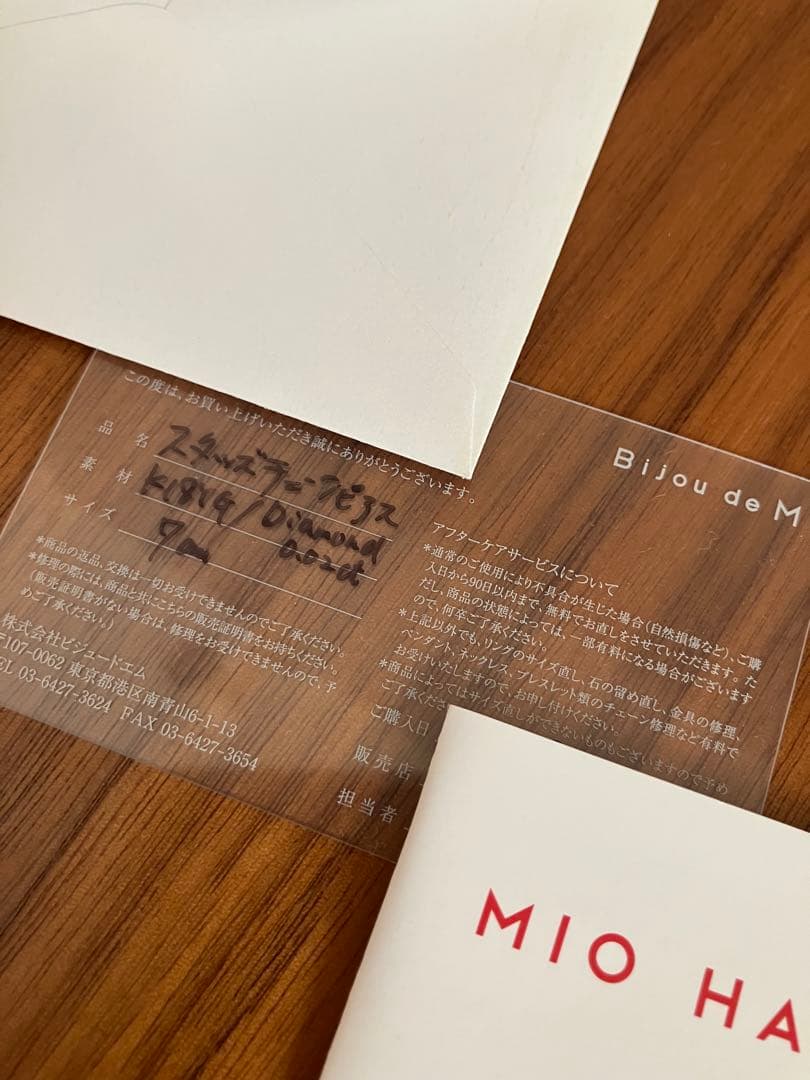 この度は、お買い上げいただき誠にありがとうございます。
品名 スタッズチェーンピアス
素材 K18YG/Diamond 0.02ct
サイズ 7cm
*商品の返品、交換は一切お受けできませんのでご了承ください。
*修理の際には、商品と共にこちらの販売証明書をお持ちください。
(販売証明書がない場合は、修理をお受けできませんので、予
めご了承ください。)
株式会社ビジュードエム
〒107-0062 東京都港区南青山6-1-13
TEL 03-6427-3624 FAX 03-6427-3654
Bijou de M
アフターケアサービスについて
*通常のご使用により不具合が生じた場合(自然損傷など)、ご購
入日から90日以内まで、無料でお直しをさせていただきます。た
だし、商品の状態によっては、一部有料になる場合がございます
ので、何卒ご了承ください。
*上記以外でも、リングのサイズ直し、石の留め直し、金具の修理、
ペンダント、ネックレス、ブレスレット類のチェーン修理など有料で
お受けいたしますので、お申し付けください。
*商品によってはサイズ直しができないものもございますので予め
ご了承くださ
ご購入日
販売店
担当者
MIO HA